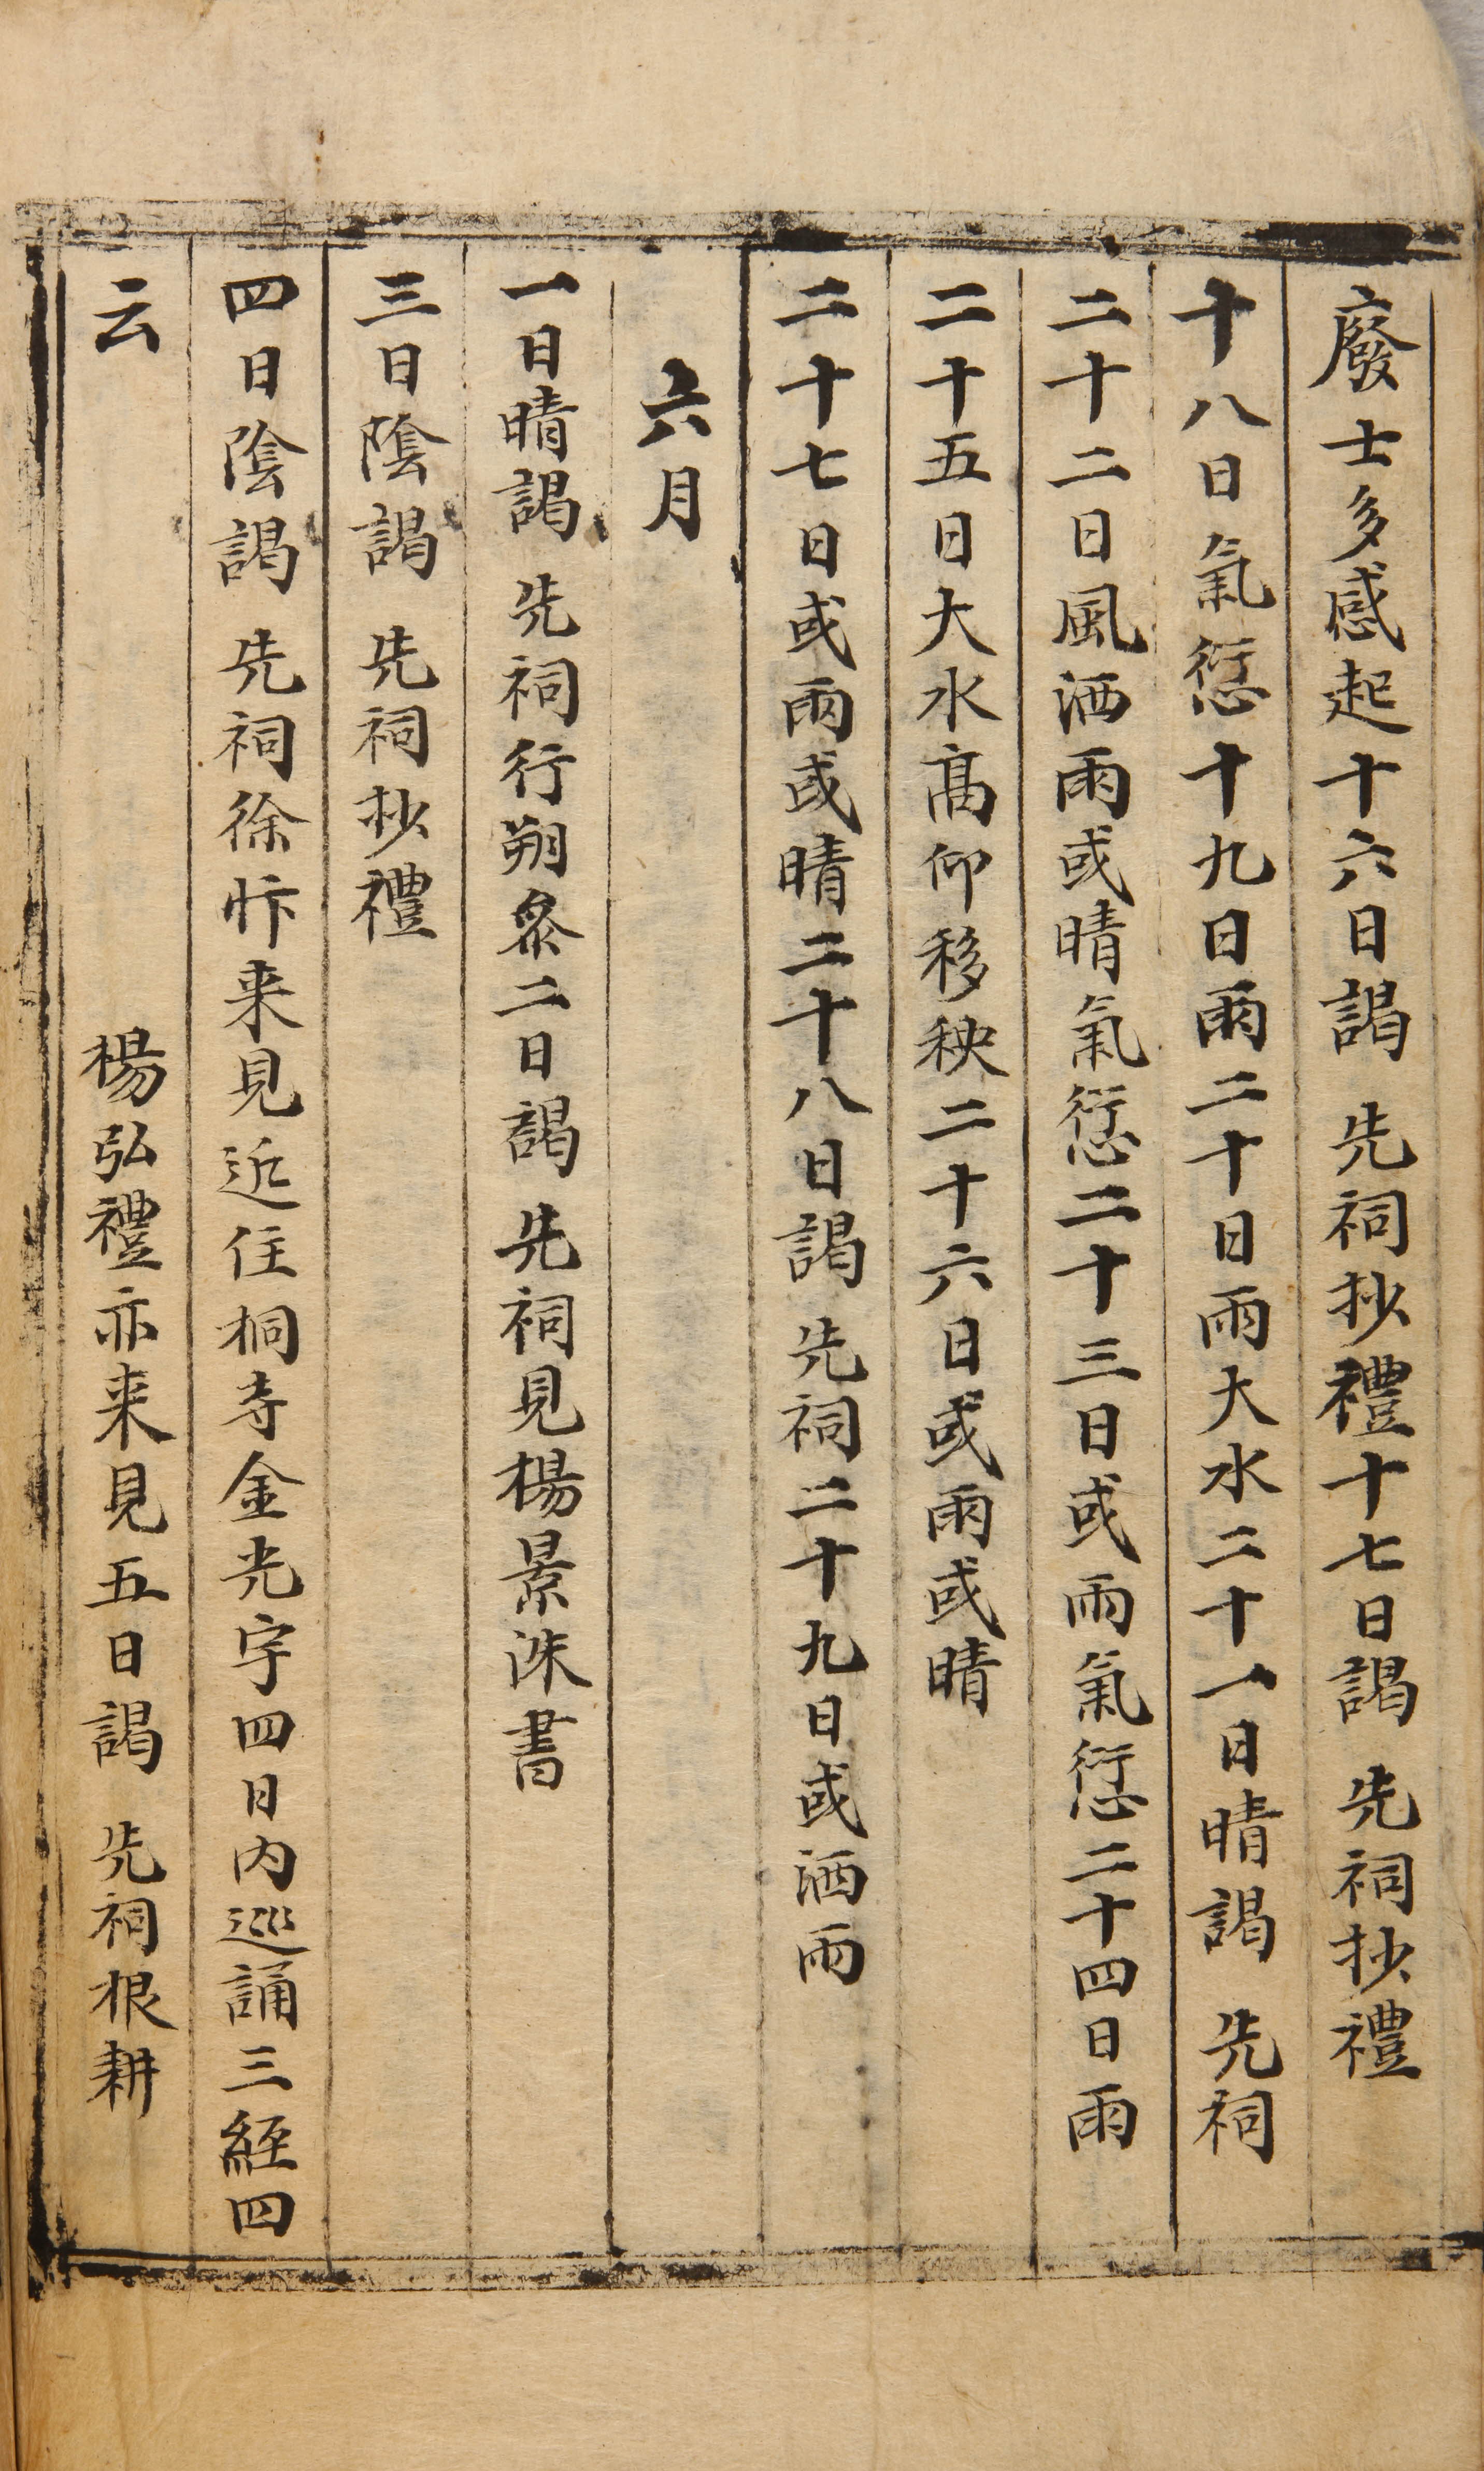 廢士多感起十六日謁 先祠抄禮十七日謁 先祠抄禮
十八日氣愆十九日雨二十日雨大水二十一日晴謁 先祠
二十二日風洒雨或晴氣愆二十三日或雨氣愆二十四日雨
二十五日大水高仰移秧二十六日或雨或晴
二十七日或雨或晴二十八日謁 先祠二十九日或洒雨
六月
一日晴謁 先祠行朔叅二日謁 先祠見楊景洙書
三日陰謁 先祠抄禮
四日陰謁 先祠徐忭来見近住桐寺金光宇四日内巡誦三經四
云 楊弘禮亦来見五日謁 先祠根耕